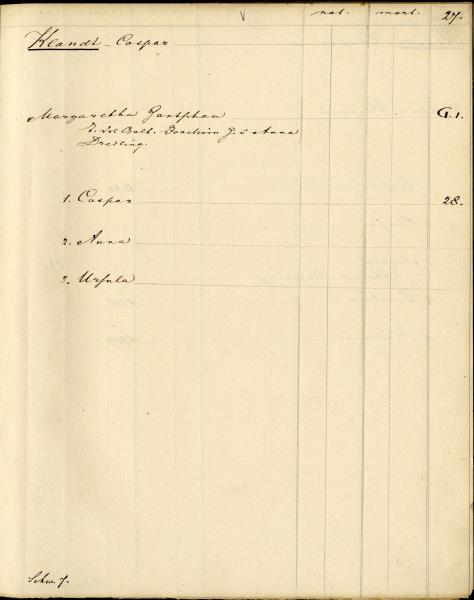 V nat. mort. 27.
Klandt - Caspar
Margaretha Gantschau G. 1.
T. des Joachim G. u Anna
Dreiling.
1. Caspar 28.
2. Anna
3. Ursula
Schw. f.